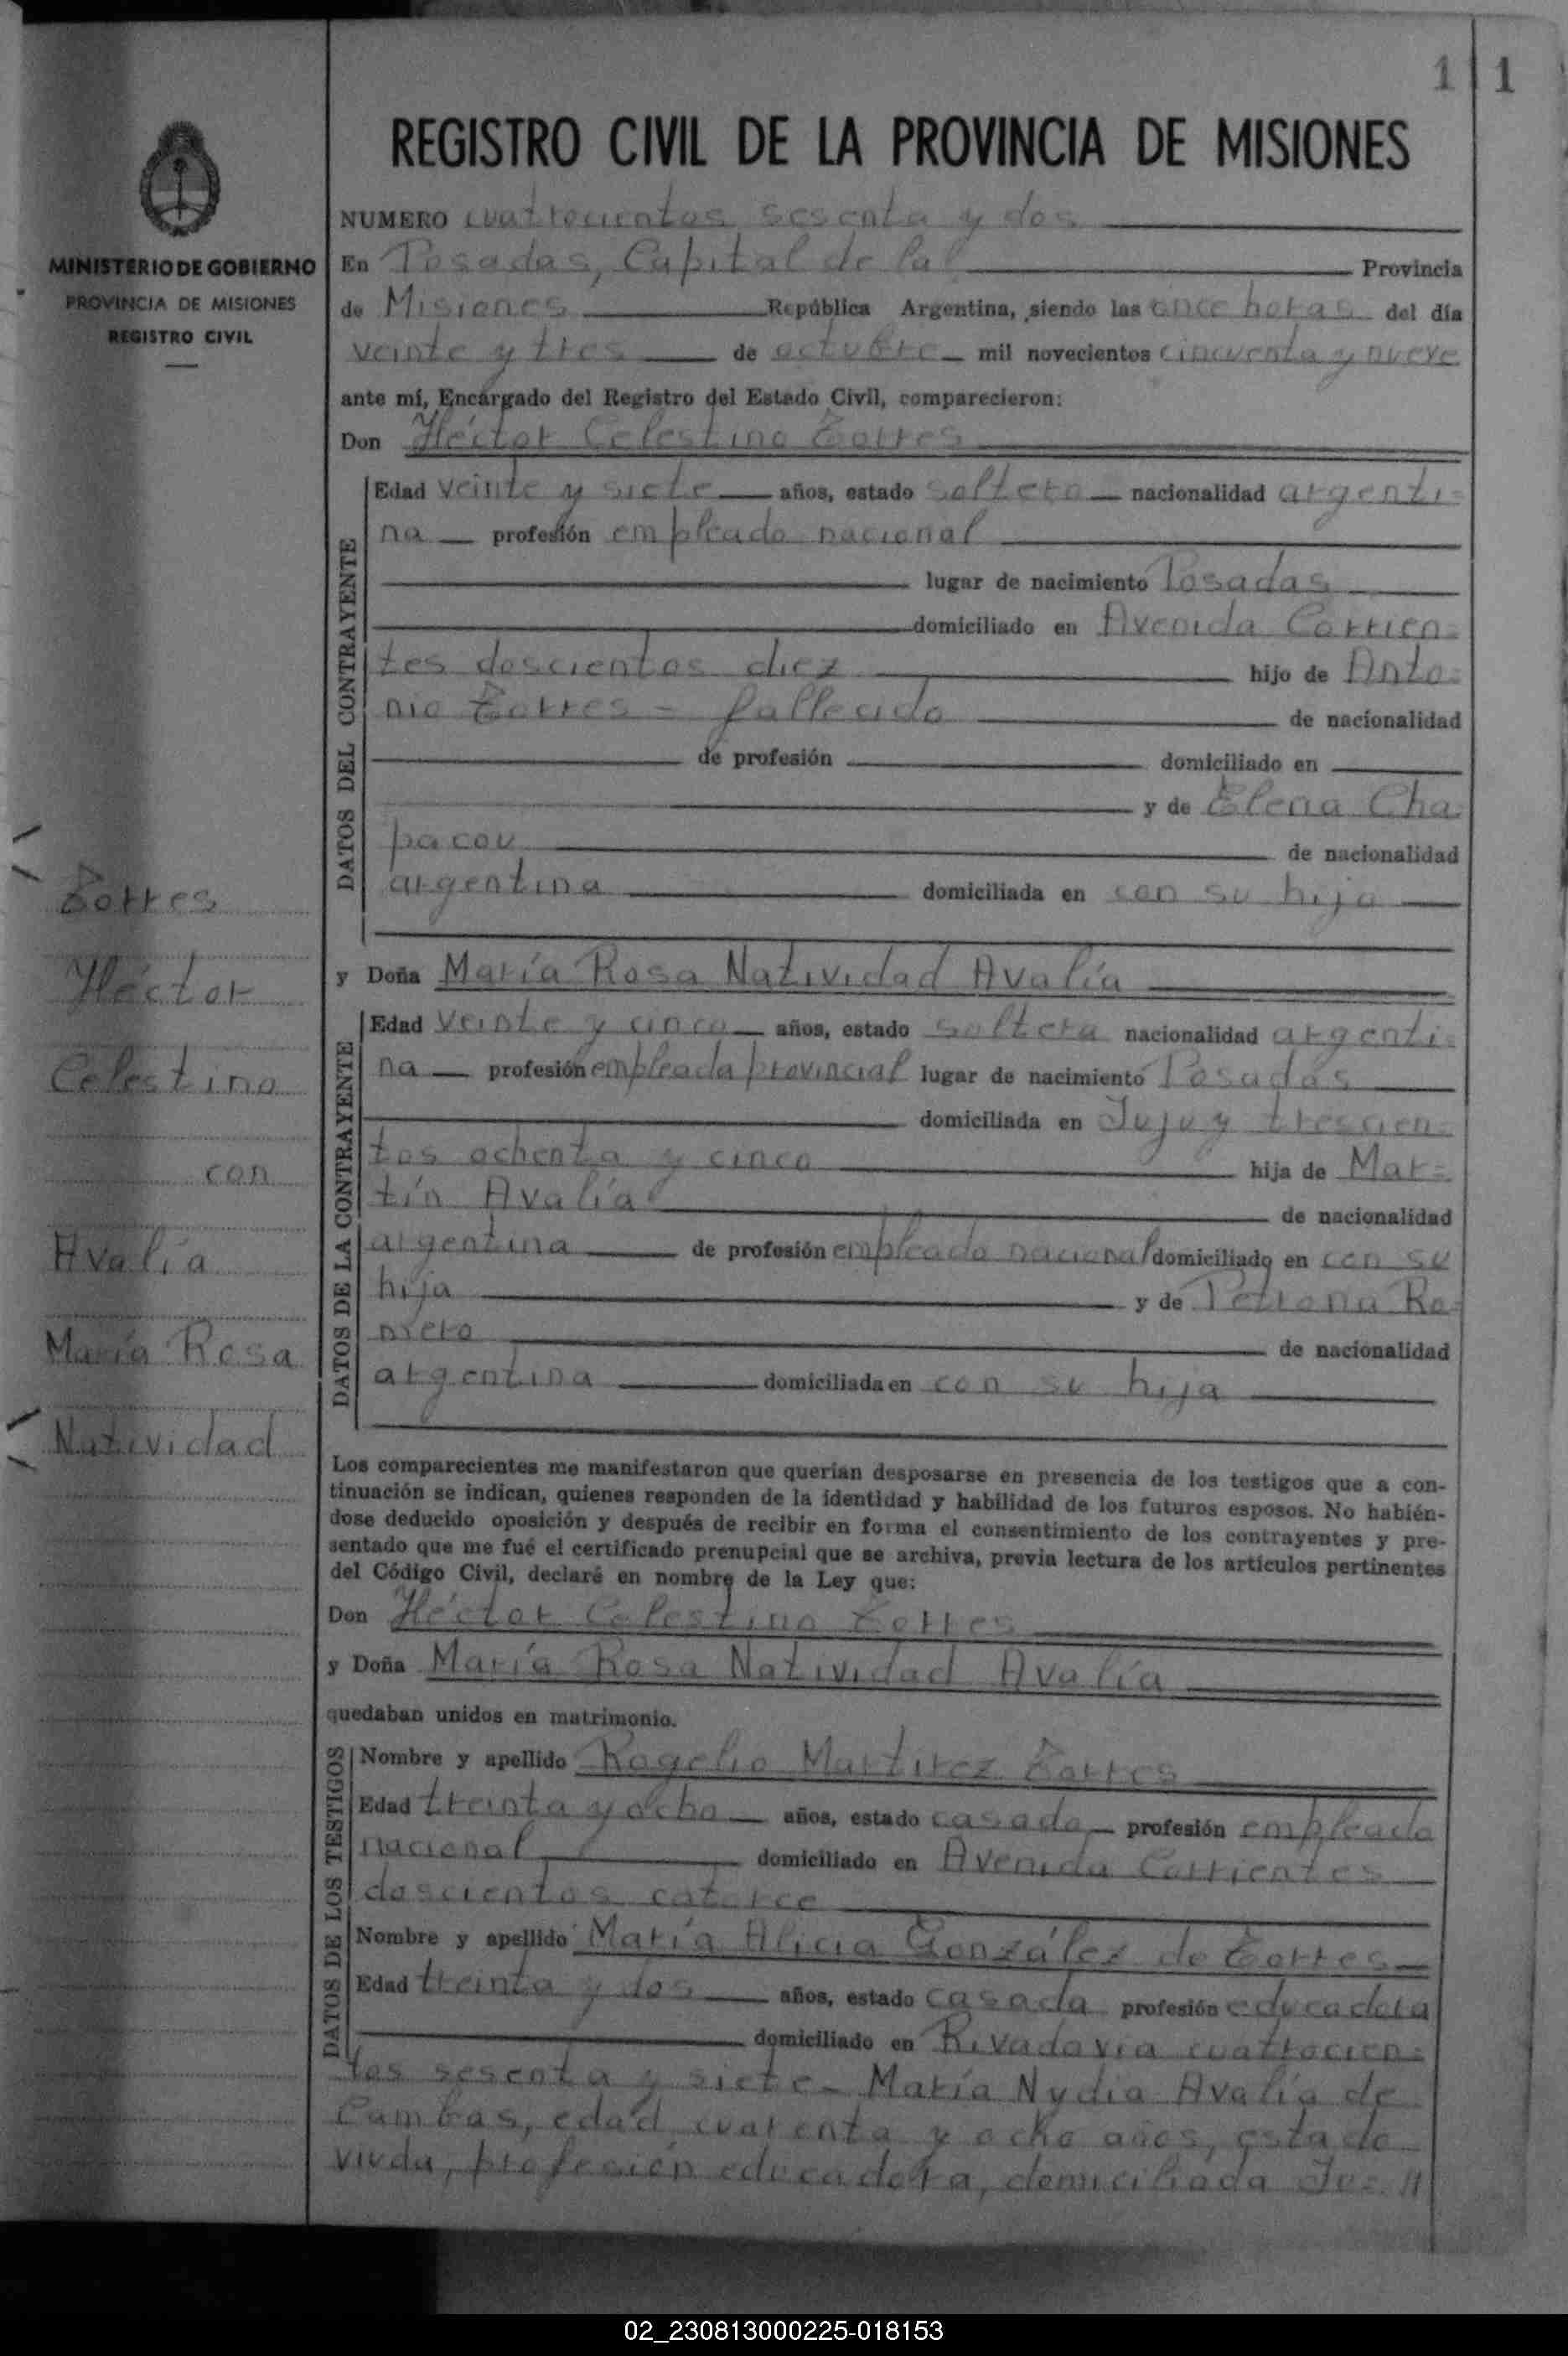 1 1
REGISTRO CIVIL DE LA PROVINCIA DE MISIONES
MINISTERIO DE GOBIERNO
PROVINCIA DE MISIONES
REGISTRO CIVIL
NUMERO cuatrocientos sesenta y dos
En Posadas, Capital de la Provincia
de Misiones República Argentina, siendo las once horas del día
veinte y tres de octubre mil novecientos cincuenta y nueve
ante mí, Encargado del Registro del Estado Civil, comparecieron:
Don Héctor Celestino Torres
DATOS DEL CONTRAYENTE
Edad veinte y siete años, estado soltero nacionalidad argenti=
na profesión empleado nacional
lugar de nacimiento Posadas
domiciliado en Avenida Corrien=
tes doscientos diez hijo de Anto=
nio Torres = fallecido de nacionalidad
de profesión domiciliado en
y de Elena Cha=
pacou de nacionalidad
argentina domiciliada en con su hijo
y Doña María Rosa Natividad Avalía
DATOS DE LA CONTRAYENTE
Edad veinte y cinco años, estado soltera nacionalidad argenti=
na profesión empleada provincial lugar de nacimiento Posadas
domiciliada en Jujuy trescien=
tos ochenta y cinco hija de Mar=
tín Avalía de nacionalidad
argentina de profesión empleado nacional domiciliado en con su
hija y de Petrona Ro=
mero de nacionalidad
argentina domiciliada en con su hija
Torres
Héctor
Celestino
con
Avalía
María Rosa
Natividad
Los comparecientes me manifestaron que querían desposarse en presencia de los testigos que a con-
tinuación se indican, quienes responden de la identidad y habilidad de los futuros esposos. No habién-
dose deducido oposición y después de recibir en forma el consentimiento de los contrayentes y pre-
sentado que me fué el certificado prenupcial que se archiva, previa lectura de los artículos pertinentes
del Código Civil, declaré en nombre de la Ley que:
Don Héctor Celestino Torres
y Doña María Rosa Natividad Avalía
quedaban unidos en matrimonio.
DATOS DE LOS TESTIGOS
Nombre y apellido Rogelio Martirez Torres
Edad treinta y ocho años, estado casado profesión empleado
nacional domiciliado en Avenida Corrientes
doscientos catorce
Nombre y apellido María Alicia González de Torres
Edad treinta y dos años, estado casada profesión educadora
domiciliado en Rivadavia cuatrocien=
tos sesenta y siete - María Nydia Avalía de
Cambas, edad cuarenta y ocho años, estado
viuda, profesión educadora, domiciliada
02_230813000225-018153